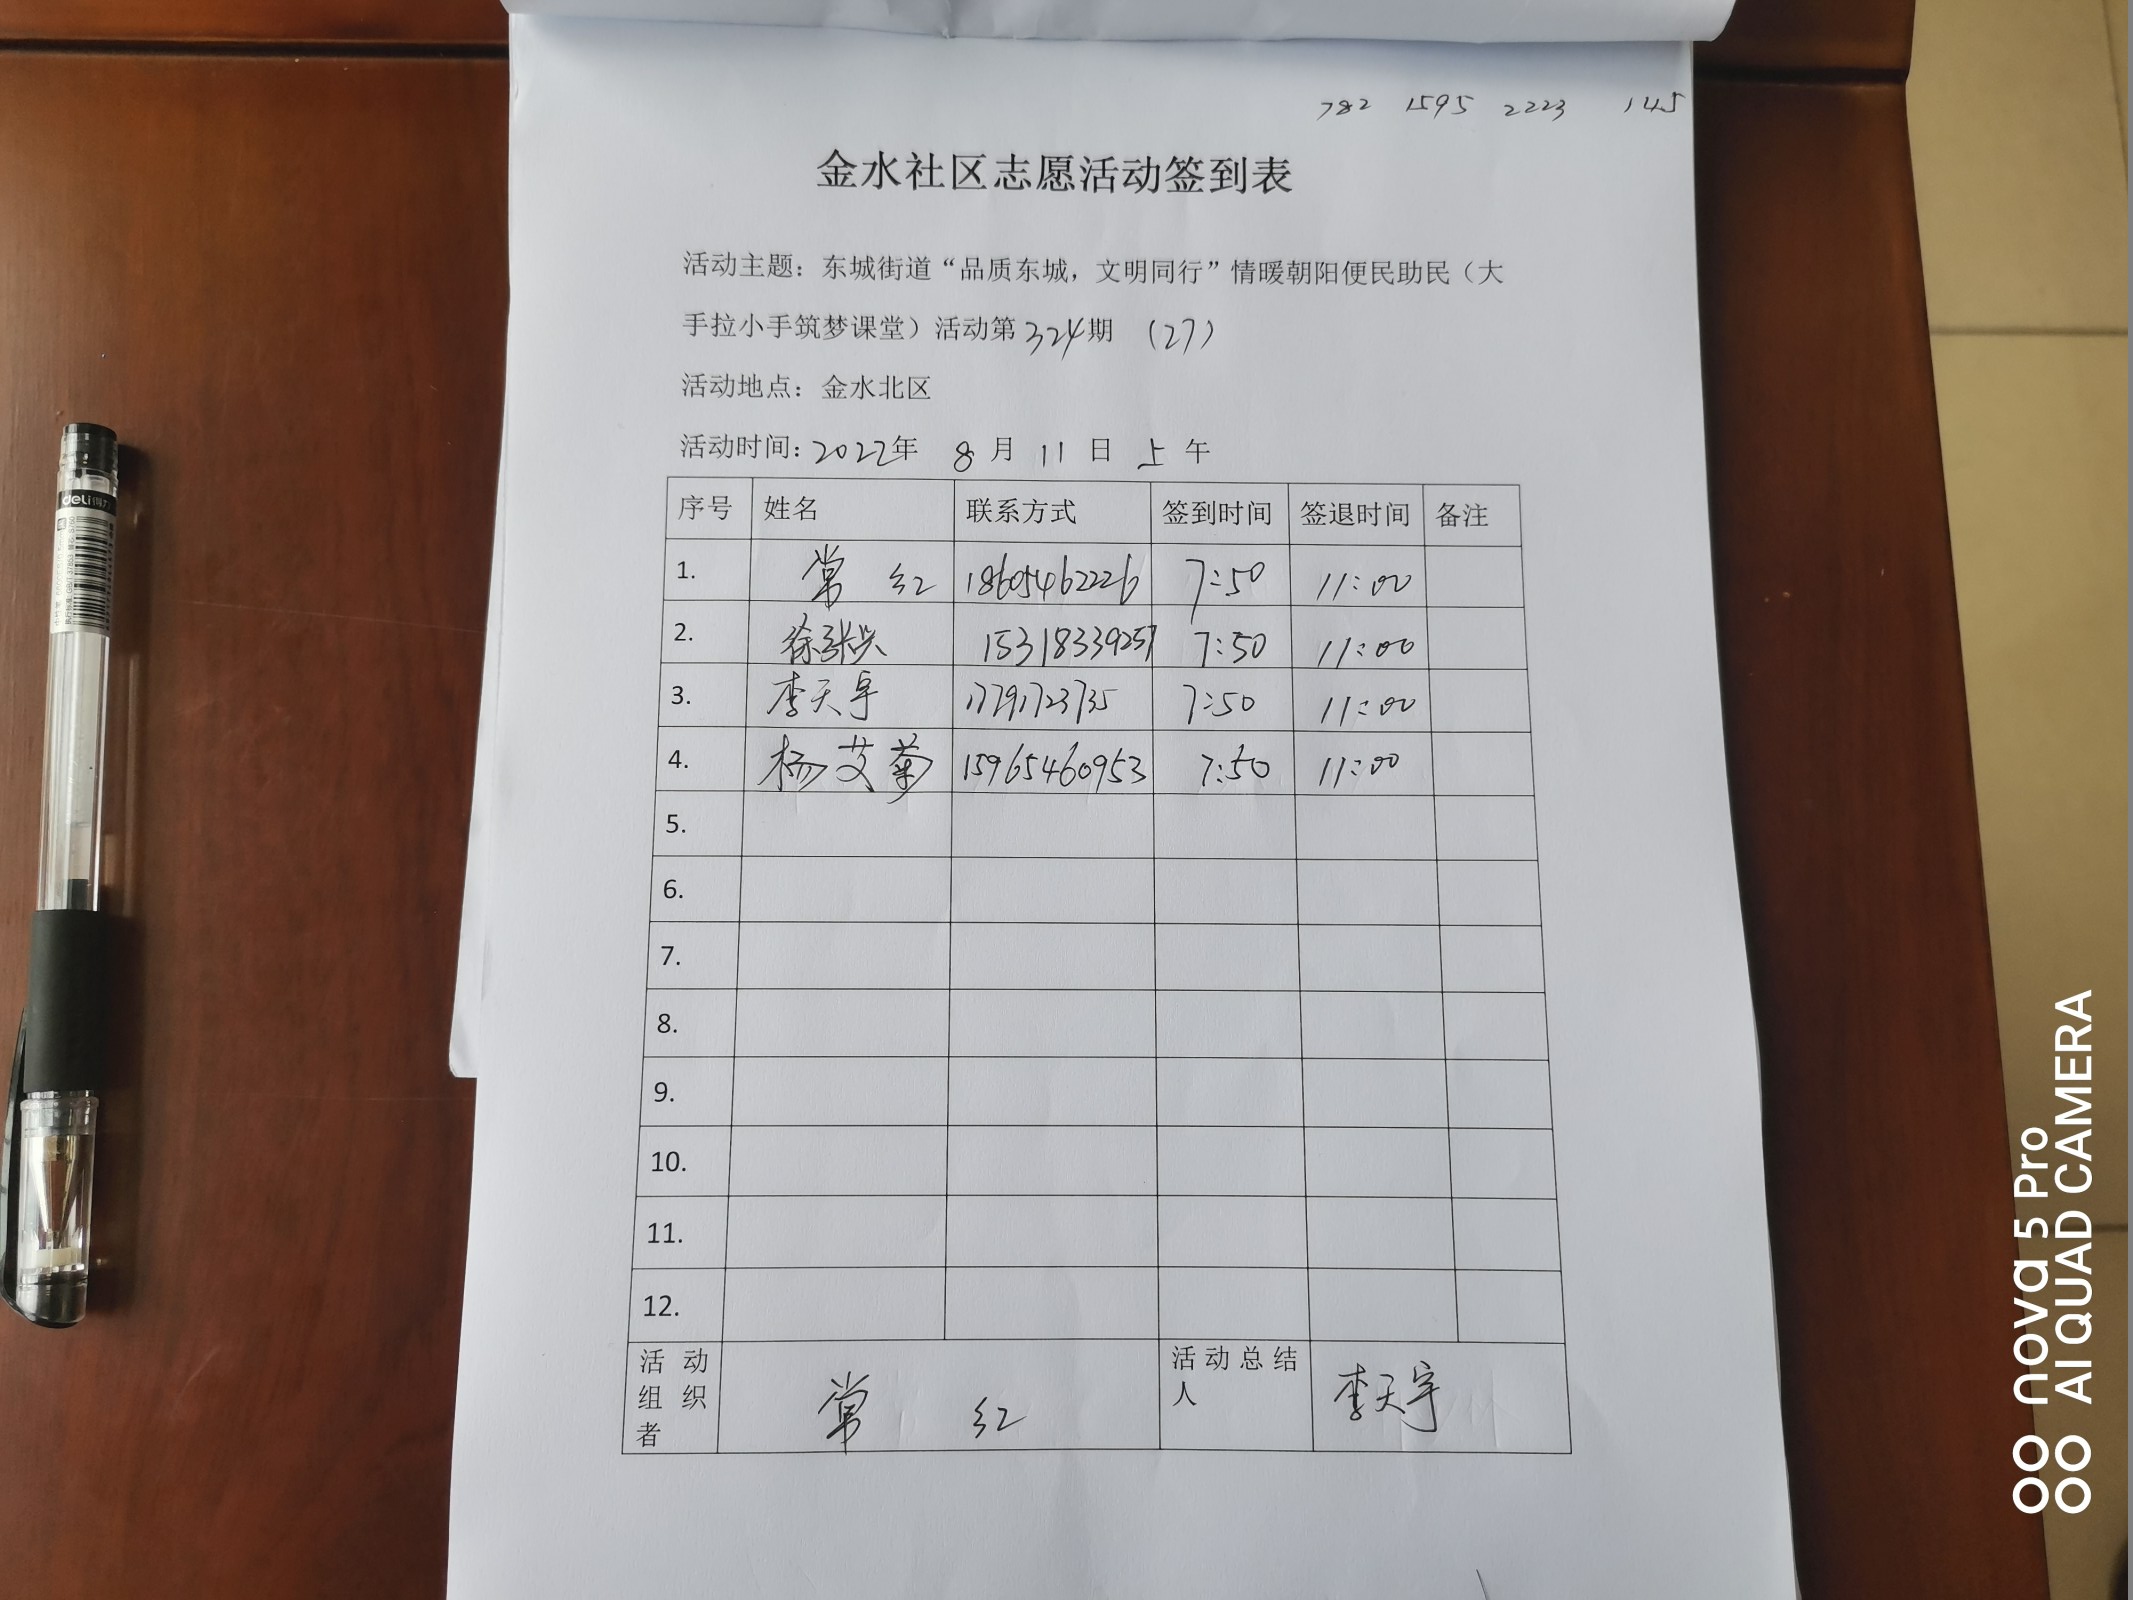 782 1595 2223 145
金水社区志愿活动签到表
活动主题：东城街道“品质东城，文明同行”情暖朝阳便民助民（大
手拉小手筑梦课堂）活动第324期 （27）
活动地点：金水北区
活动时间：2022年 8月11日上午
序号 姓名 联系方式 签到时间 签退时间 备注
1. 常红 18605462226 7:50 11:00
2. 徐 15318339257 7:50 11:00
3. 李天宇 7:50 11:00
4. 杨艾菊 15965460953 7:50 11:00
5.
6.
7.
8.
9.
10.
11.
12.
活动组织者 常红 活动总结人 李天宇
deli得力
nova 5 Pro
AI QUAD CAMERA